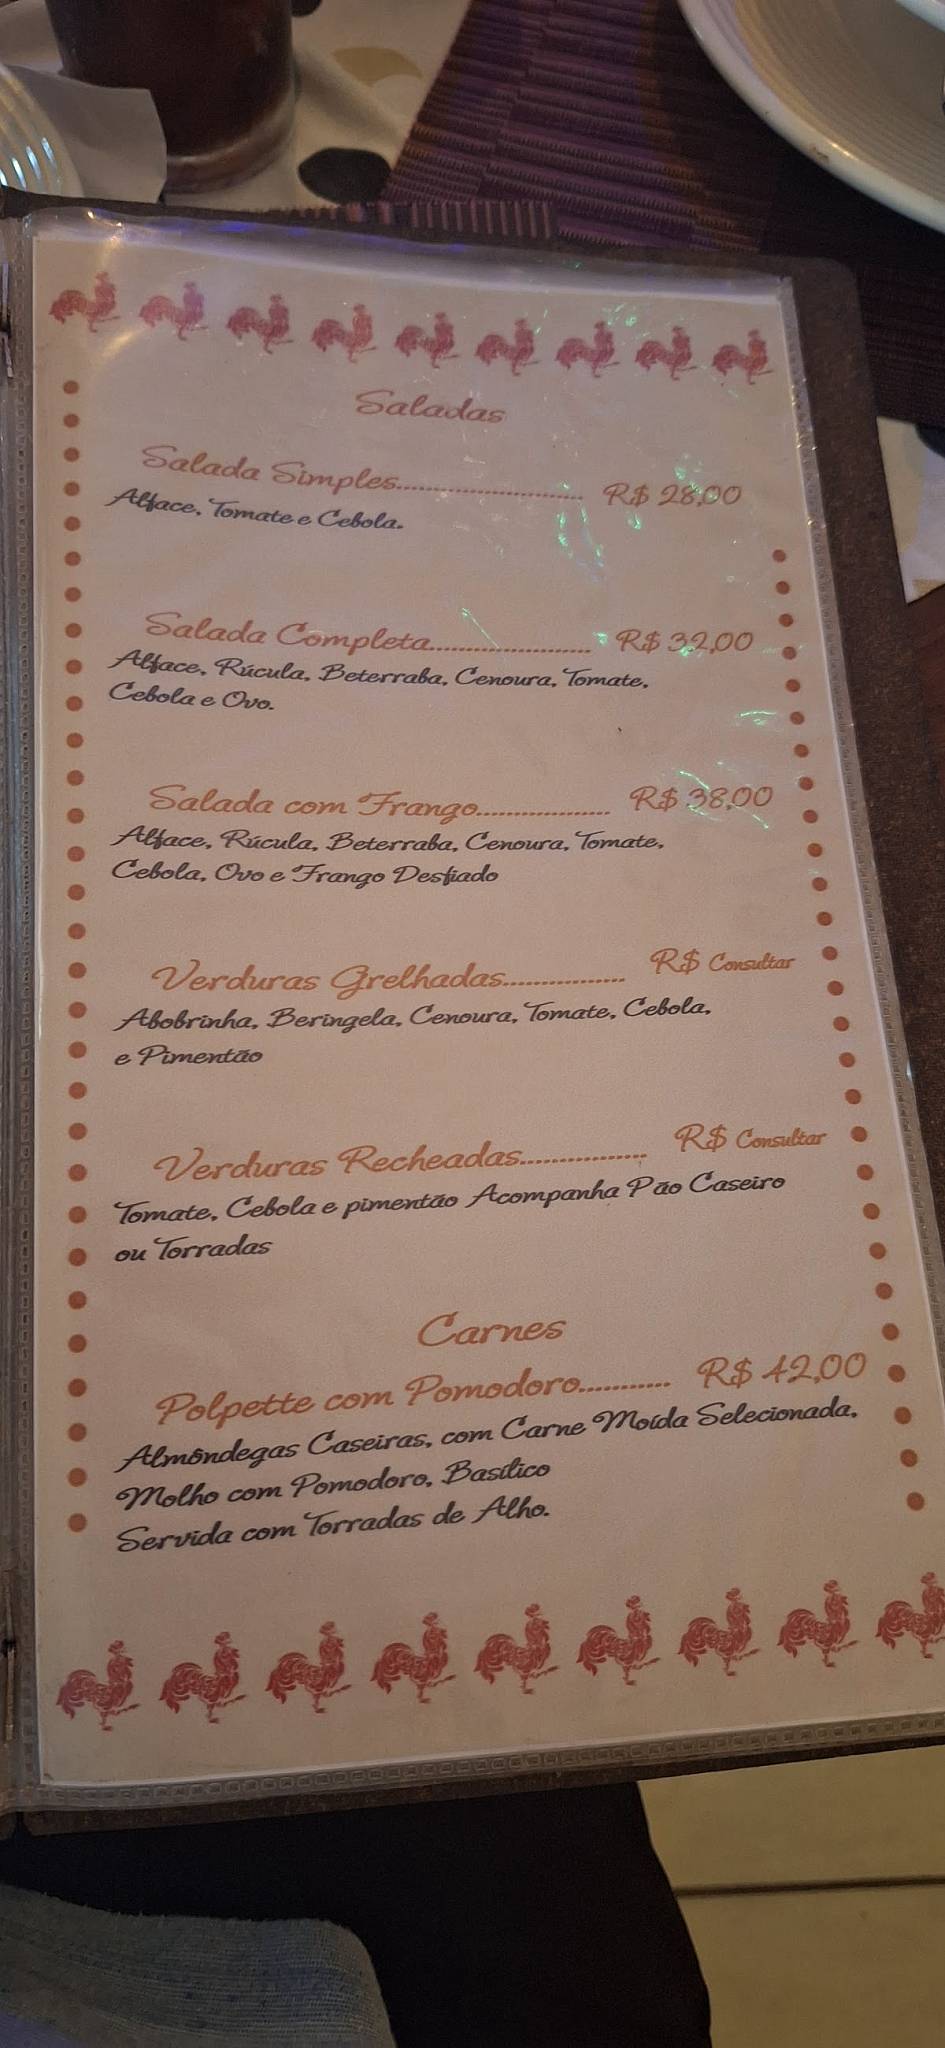 Saladas
Salada Simples........................... R$ 28,00
Alface, Tomate e Cebola.
Salada Completa........................ R$ 32,00
Alface, Rúcula, Beterraba, Cenoura, Tomate,
Cebola e Ovo.
Salada com Frango................... R$ 38,00
Alface, Rúcula, Beterraba, Cenoura, Tomate,
Cebola, Ovo e Frango Desfiado
Verduras Grelhadas................. R$ Consultar
Abobrinha, Beringela, Cenoura, Tomate, Cebola,
e Pimentão
Verduras Recheadas................. R$ Consultar
Tomate, Cebola e pimentão Acompanha Pão Caseiro
ou Torradas
Carnes
Polpette com Pomodoro............ R$ 42,00
Almôndegas Caseiras, com Carne Moída Selecionada,
Molho com Pomodoro, Basílico
Servida com Torradas de Alho.